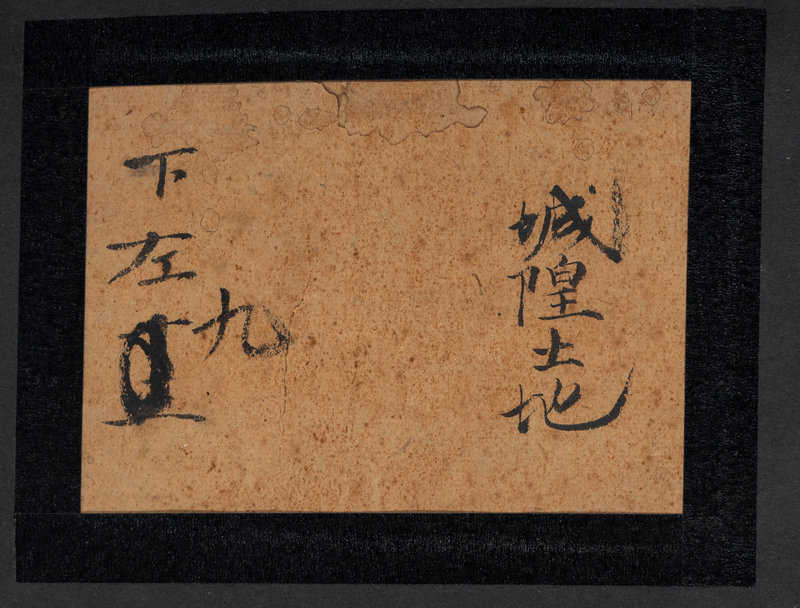 城隍土地
下左
九